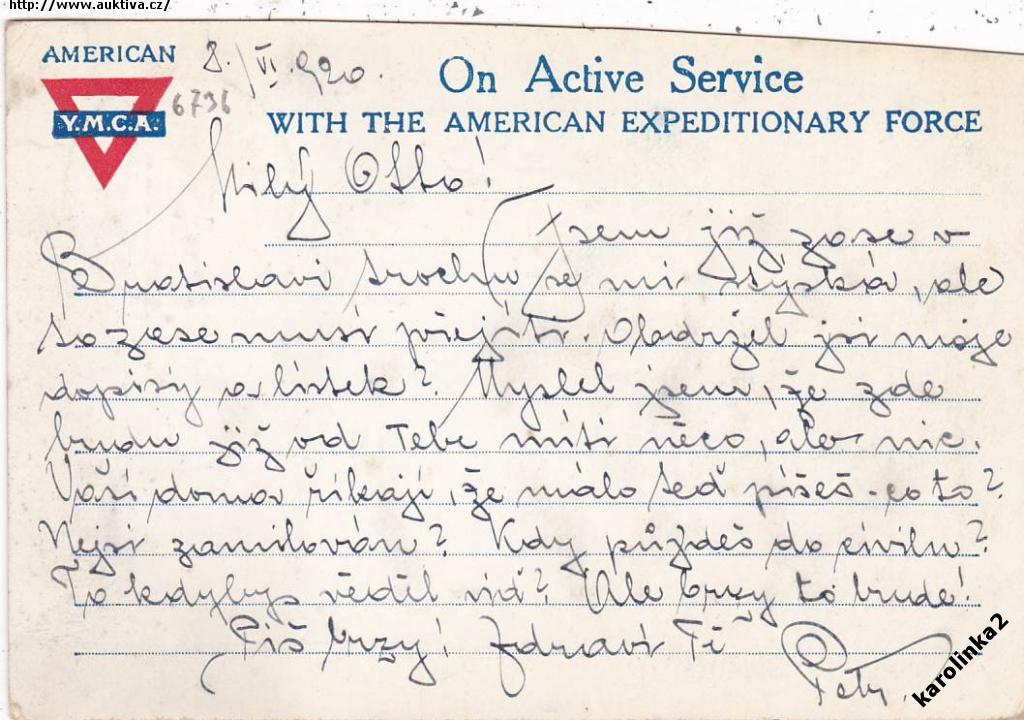 http://www.auktiva.cz/
AMERICAN
Y.M.C.A.
8./VI. 920.
6736
On Active Service
WITH THE AMERICAN EXPEDITIONARY FORCE
Milý Otto!
Jsem již zase v
Bratislavi trochu se mi stýská, ale
to zase musí přejíti. Obdržel jsi moje
dopisy a lístek? Myslel jsem, že zde
budu již od Tebe míti něco, ale nic.
Vaši doma říkají, že málo teď píšeš - co to?
Nejsi zamilován? Kdy půjdeš do civilu?
To kdybys věděl viď? Ale brzy to bude!
Piš brzy! Zdraví Tě
Petr.
karolinka2